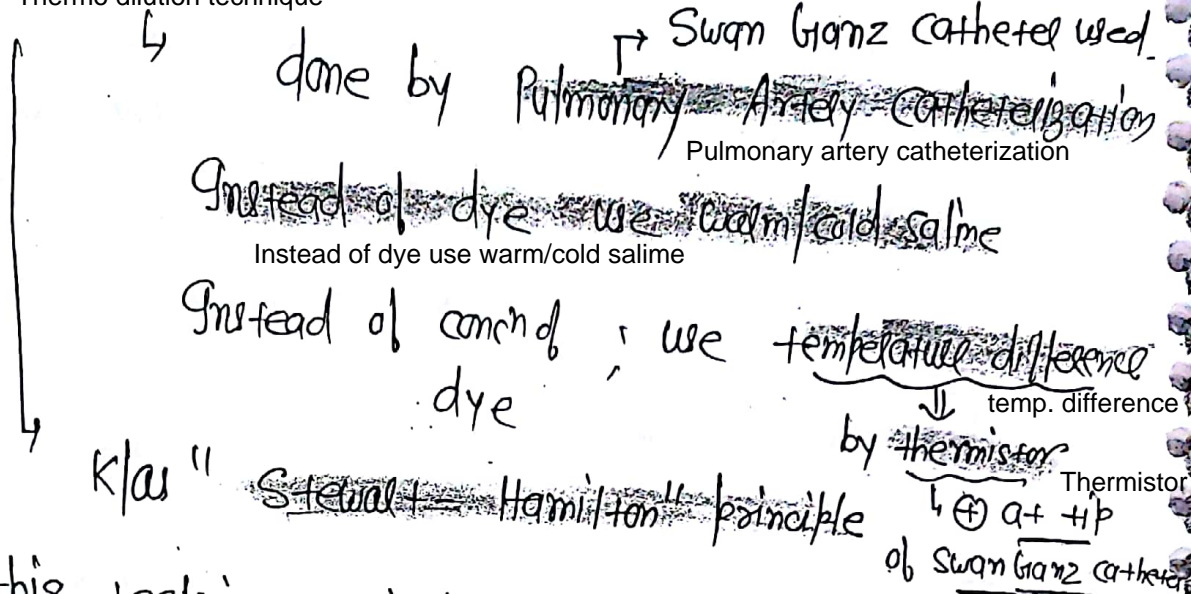 Thermo dilution technique
↳ done by Pulmonary Artery Catheterization
↱ Swan Ganz catheter used
Pulmonary artery catheterization
Instead of dye use warm/cold saline
Instead of dye use warm/cold salime
Instead of concn of dye ; use temperature difference
temp. difference
⇓
by thermistor
Thermistor
↳ ⊕ at tip
of Swan Ganz catheter
K/as "Stewart = Hamilton" principle